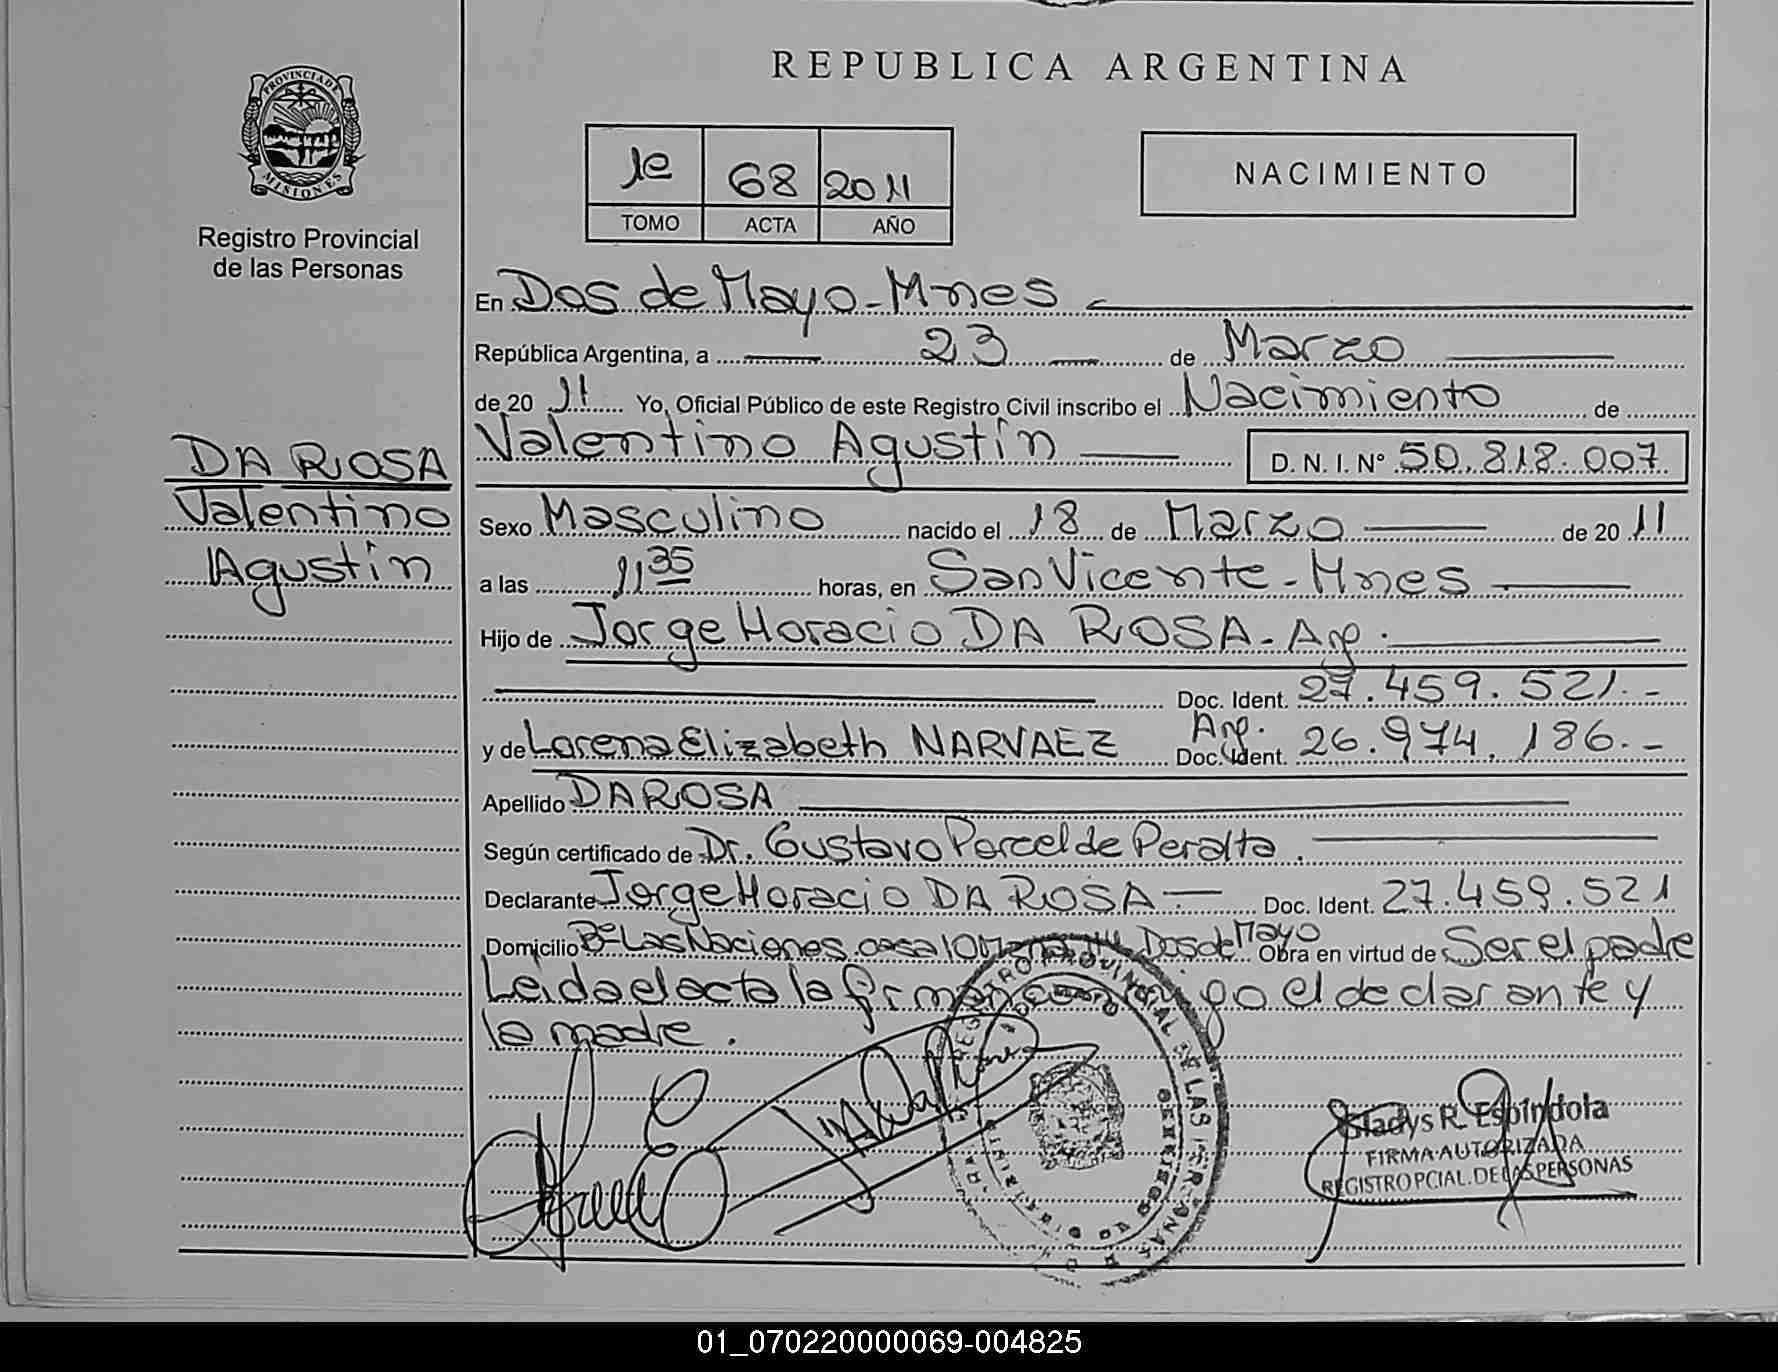 REPUBLICA ARGENTINA
PROVINCIA DE
MISIONES
Registro Provincial
de las Personas
1e 68 2011
TOMO ACTA AÑO
NACIMIENTO
En Dos de Mayo - Mnes
República Argentina, a 23 de Marzo
de 20 11 Yo, Oficial Público de este Registro Civil inscribo el Nacimiento de
Valentino Agustín D. N. I. N° 50.818.007
DA ROSA
Valentino
Agustín
Sexo Masculino nacido el 18 de Marzo de 20 11
a las 11 35 horas, en San Vicente - Mnes
Hijo de Jorge Horacio DA ROSA - Arg.
Doc. Ident. 27.459.521.-
y de Lorena Elizabeth NARVAEZ Arg. Doc. Ident. 26.974.186.-
Apellido DA ROSA
Según certificado de Dr. Gustavo Porcel de Peralta.
Declarante Jorge Horacio DA ROSA - Doc. Ident. 27.459.521
Domicilio B° Las Naciones casa 10 Dos de Mayo Obra en virtud de Ser el padre
Leida el acta la firman conmigo el declarante y
la madre.
REGISTRO PROVINCIAL DE LAS PERSONAS
Gladys R. Espíndola
FIRMA AUTORIZADA
REGISTRO PCIAL. DE LAS PERSONAS
01_070220000069-004825